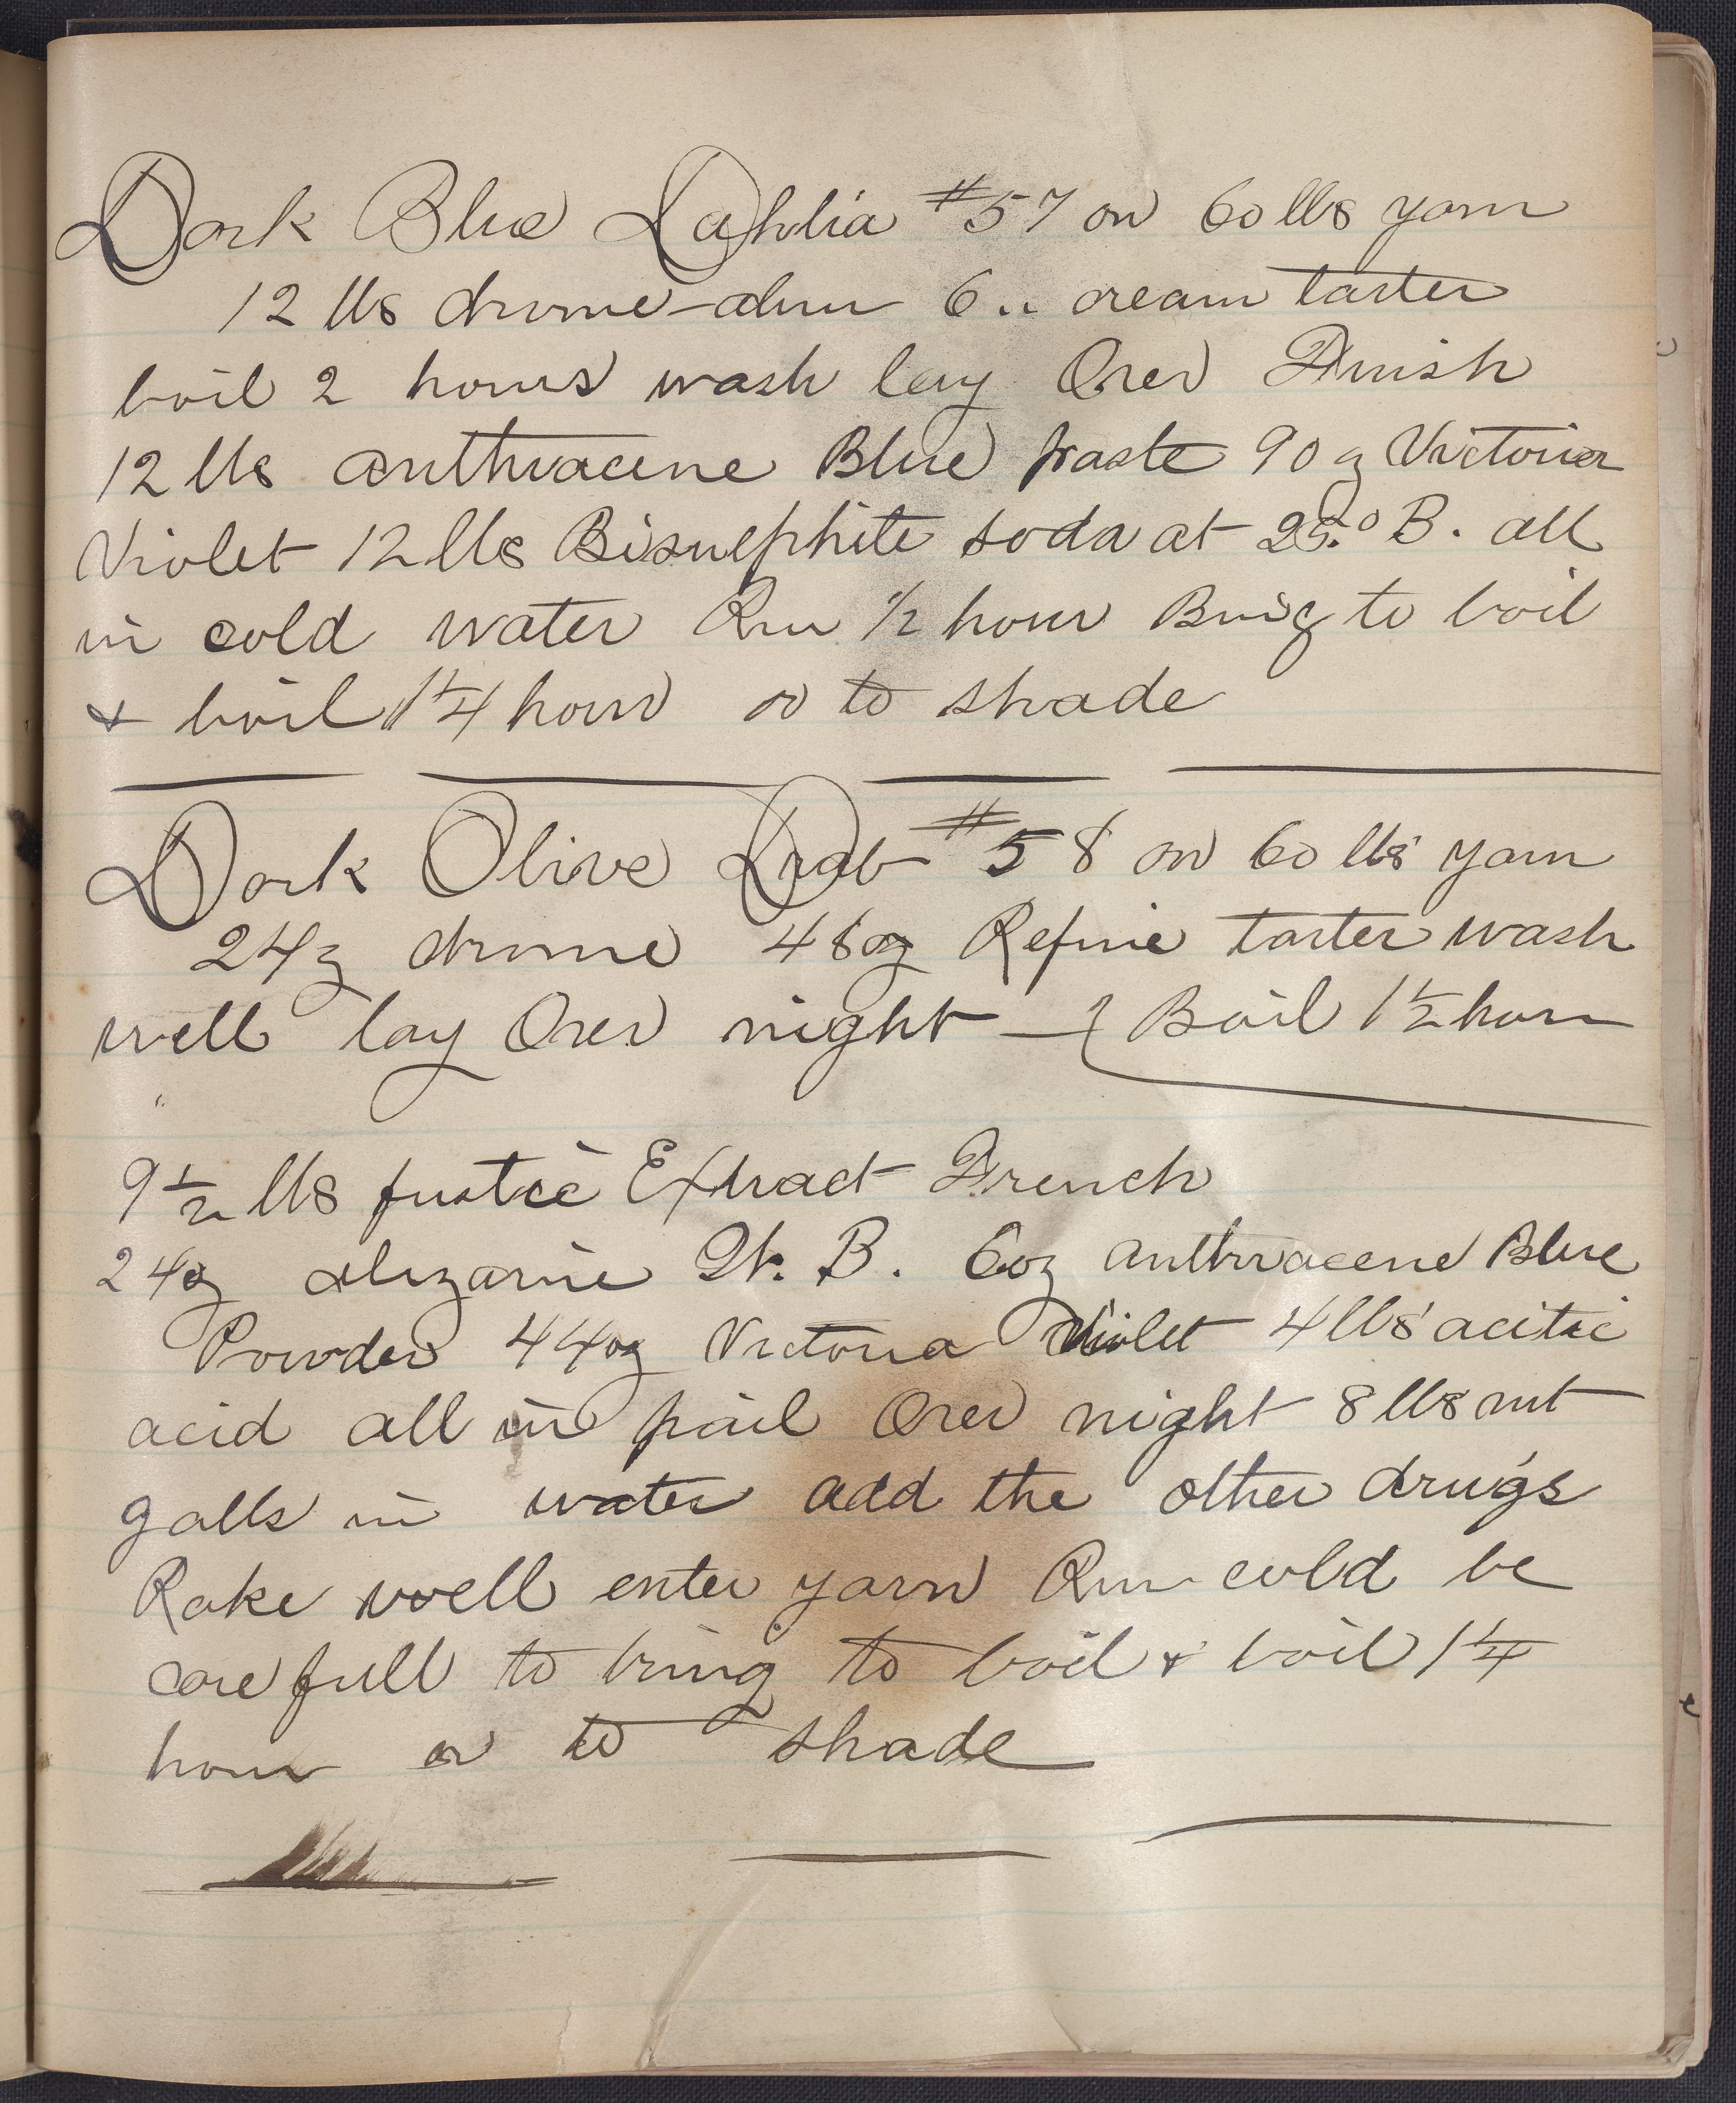 Dark Blue Dahlia #57 on 60 lbs yarn
12 lbs chrome-alum 6 .. cream tarter
boil 2 hours wash lay Over Finish
12 lbs anthracene Blue paste 90 oz Victoria
Violet 12 lbs Bisulphite soda at 25.° B. all
in cold water Run 1/2 hour Bring to boil
& boil 1 1/4 hour or to shade
Dark Olive Drab #58 on 60 lbs yarn
24 oz chrome 48 oz Refine tarter wash
well lay Over night — } Boil 1 1/2 hour
9 1/2 lbs fustic Extract French
24 oz alizarine W. B. 6 oz anthracene Blue
Powder 44 oz Victoria Violet 4 lbs acitic
acid all in pail Over night 8 lbs nut
galls in water add the other drugs
Rake well enter yarn Run cold be
carefull to bring to boil & boil 1 1/4
hour or to shade